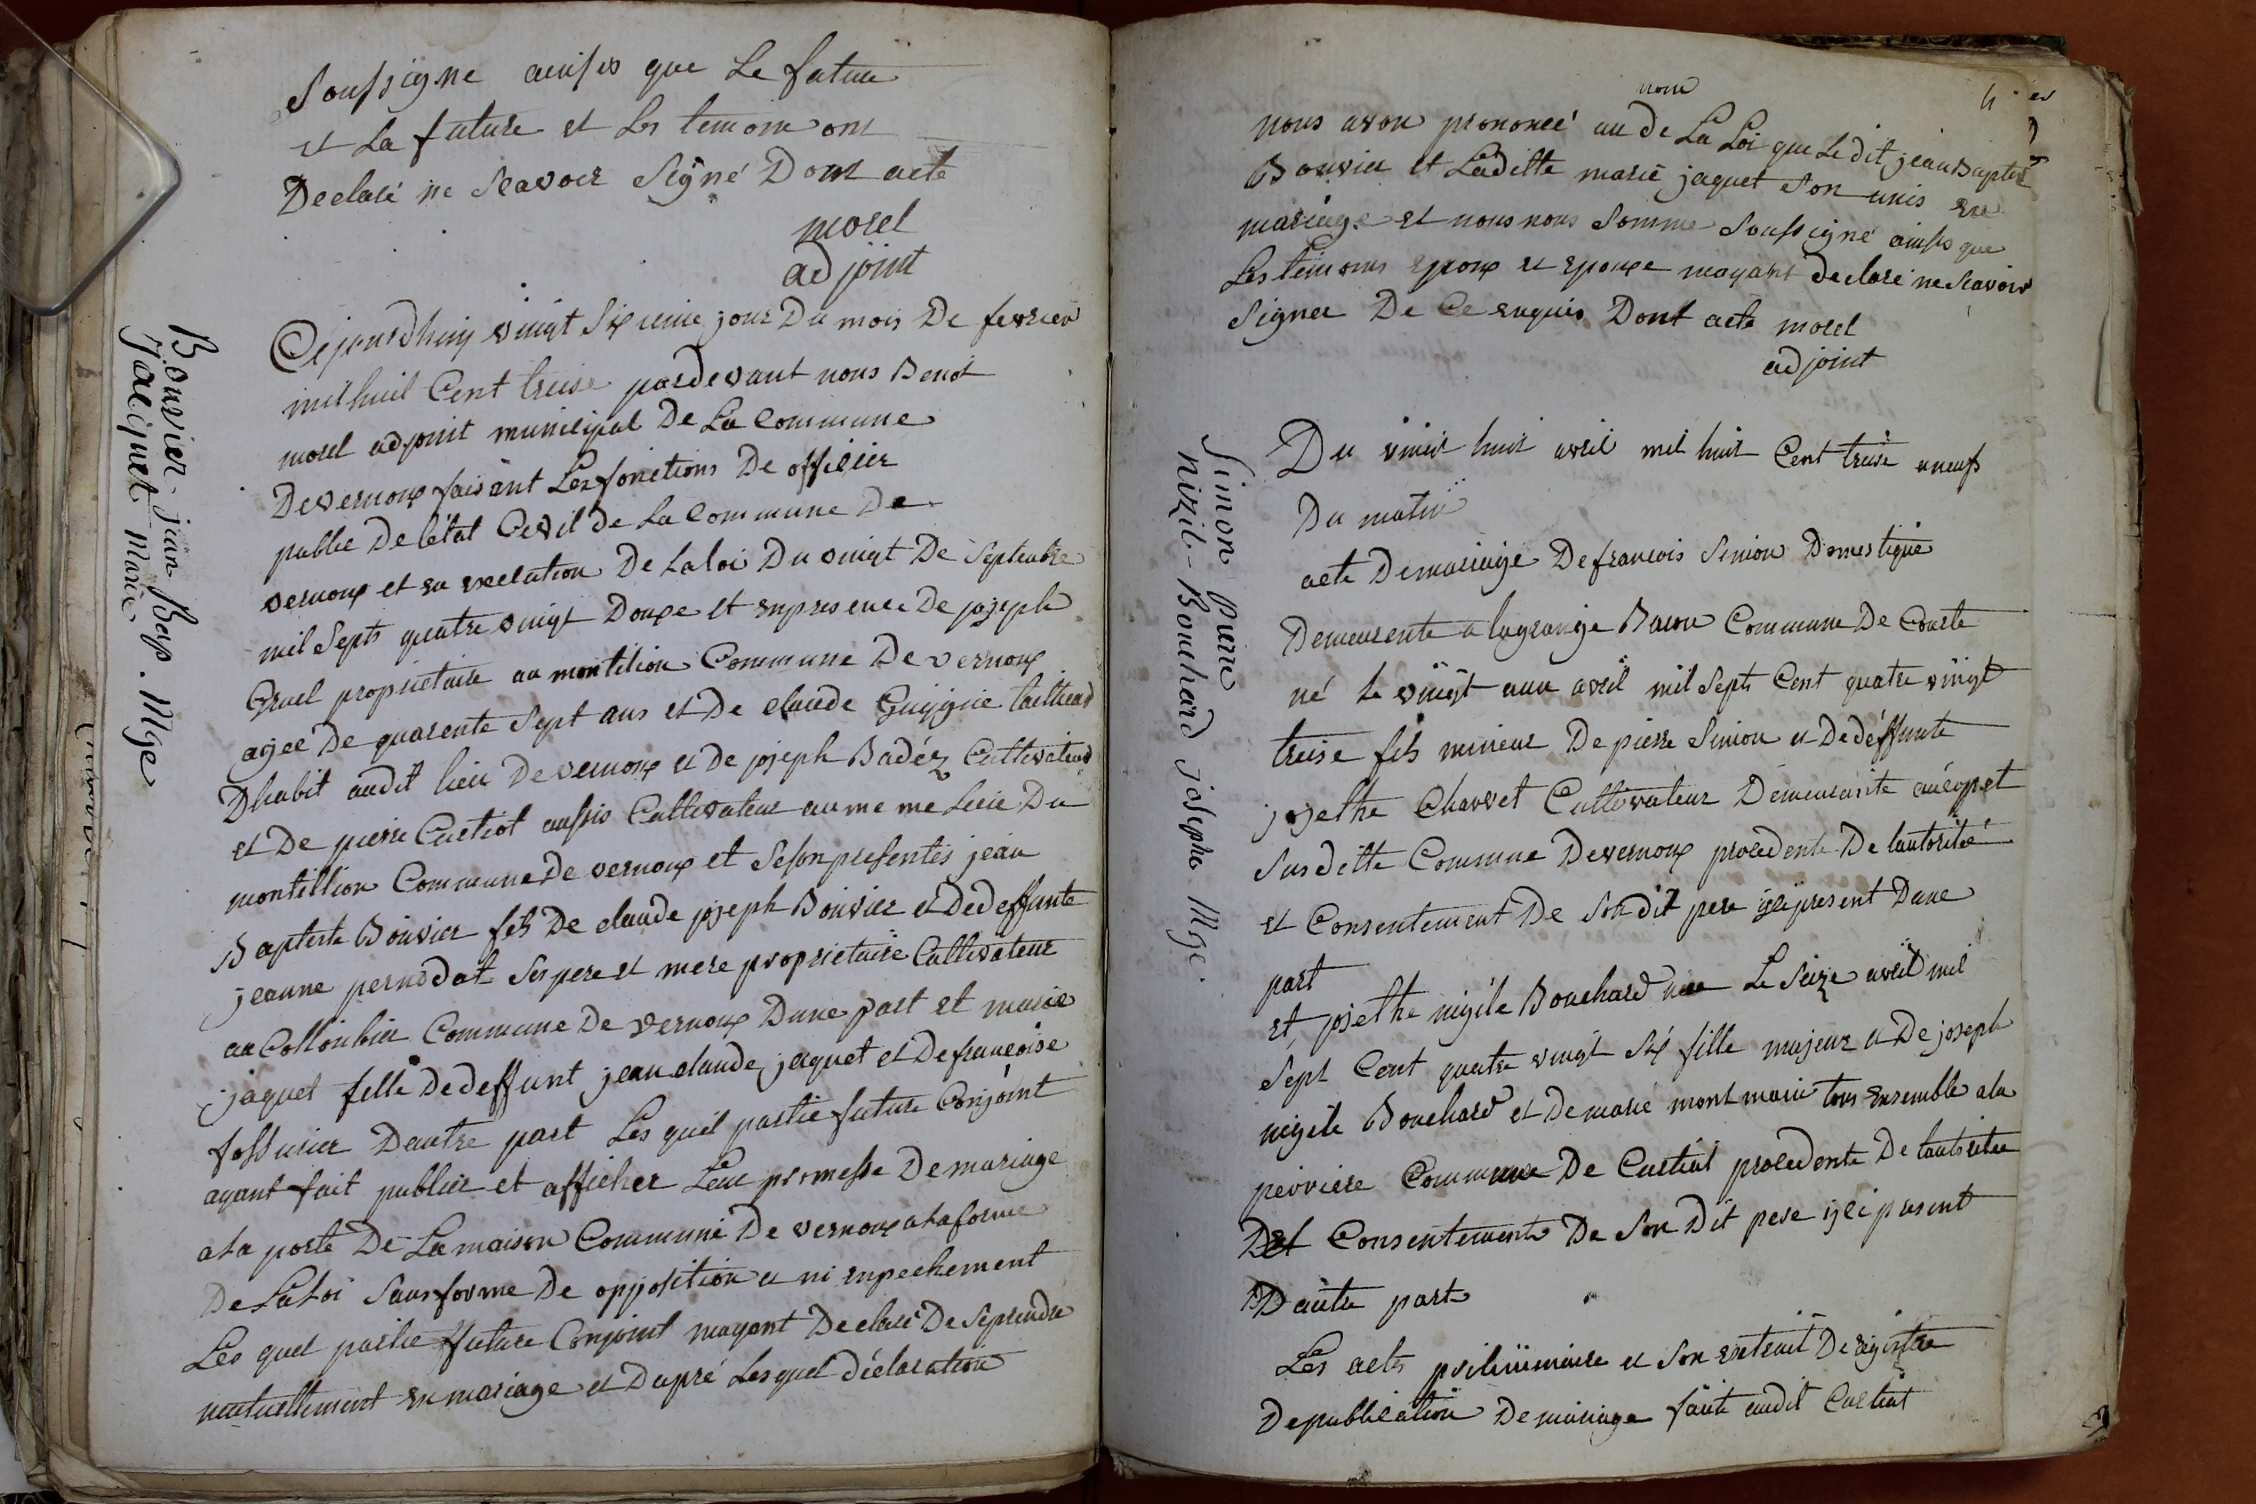 Soussigne ainsis que Le future
et La future et Les temoins ont
Declaré ne Scavoir Signé Dont acte
morel
adjoint
Bouvier jean Bap. Mge
Jacquet Marie
Cejourdhuy vingt Sixieme jour Du mois De fevrier
mil huit Cent treise pardevant nous Benoit
morel adjoint municipal De La Commune
De vernoux faisant Les fonctions De officier
public De létat Civil de La Commune De
vernoux et en execution De La loi Du vingt De Septembre
mil Septs quatre vingt Douxe et enpresence De joseph
Gruel proprietaire au montilion Commune De vernoux
agee De quarente Sept ans et De claude Guiggue
Dhabit audit lieu De vernoux et De joseph Badez Cultivateur
et De pierre Curtiot aussis Cultivateur au me me Lieu Du
montillion Commune De vernoux et Seson presentés jean
Baptiste Bouvier fils De claude joseph Bouvier et De deffunte
jeanne pernodat Ses pere et mere proprietaire Cultivateur
au Collonbier Commune De vernoux Dune part et marie
jaquet fille De deffunt jean claude jaquet et De francoise
fossurier Dautre part Les quel partie future Conjoint
ayant fait publier et afficher Leur promesse De mariage
a La porte De La maison Commune De vernoux a La forme
De La Loi Sans forme De opposition a ni enpechement
Les quel partie future Conjoint mayant Declaré De Seprendre
mutuellement en mariage et Dapré Les quel déclaration
nom
nous avon prononcé au de La Loi que Le dit jean Baptiste
Bouvier et Laditte marie jaquet Son unis en
mariage et nous nous Somme Soussigné ainsis que
Les temoins epoux et epouxe mayant declaré ne Scavoir
Signer De Ce enquis Dont acte morel
adjoint
Simon Pierre
Nizil-Bouchard josephe Mge.
Du vingt huit avril mil huit Cent treise a neufs
Du matin
acte De mariage De francois Simion Domestique
Demeurente a lagrange Baron Commune De
né Le vingt aun avril mil Septs Cent quatre vingt
treise fils mineur De pierre Simion et De déffunte
josethe Charvet Cultivateur Demeurante
Susditte Commune De vernoux procedente De lautorité
et Consentement De Son dit pere içi present Dune
part
et josethe nigile Bouchard nee Le Seize avril mil
Sept Cent quatre vingt Six fille majeur a De joseph
nigile Bouchard et De marie mont marie tous ensemble a la
perviere Commune De Curtiat procedente De lautoritee
Det Consentemente De Son Dit pere ici present
Dautre part
Les acts prilimimaire et Son extrait De registre
De publication De mariage faite audit Curtiat